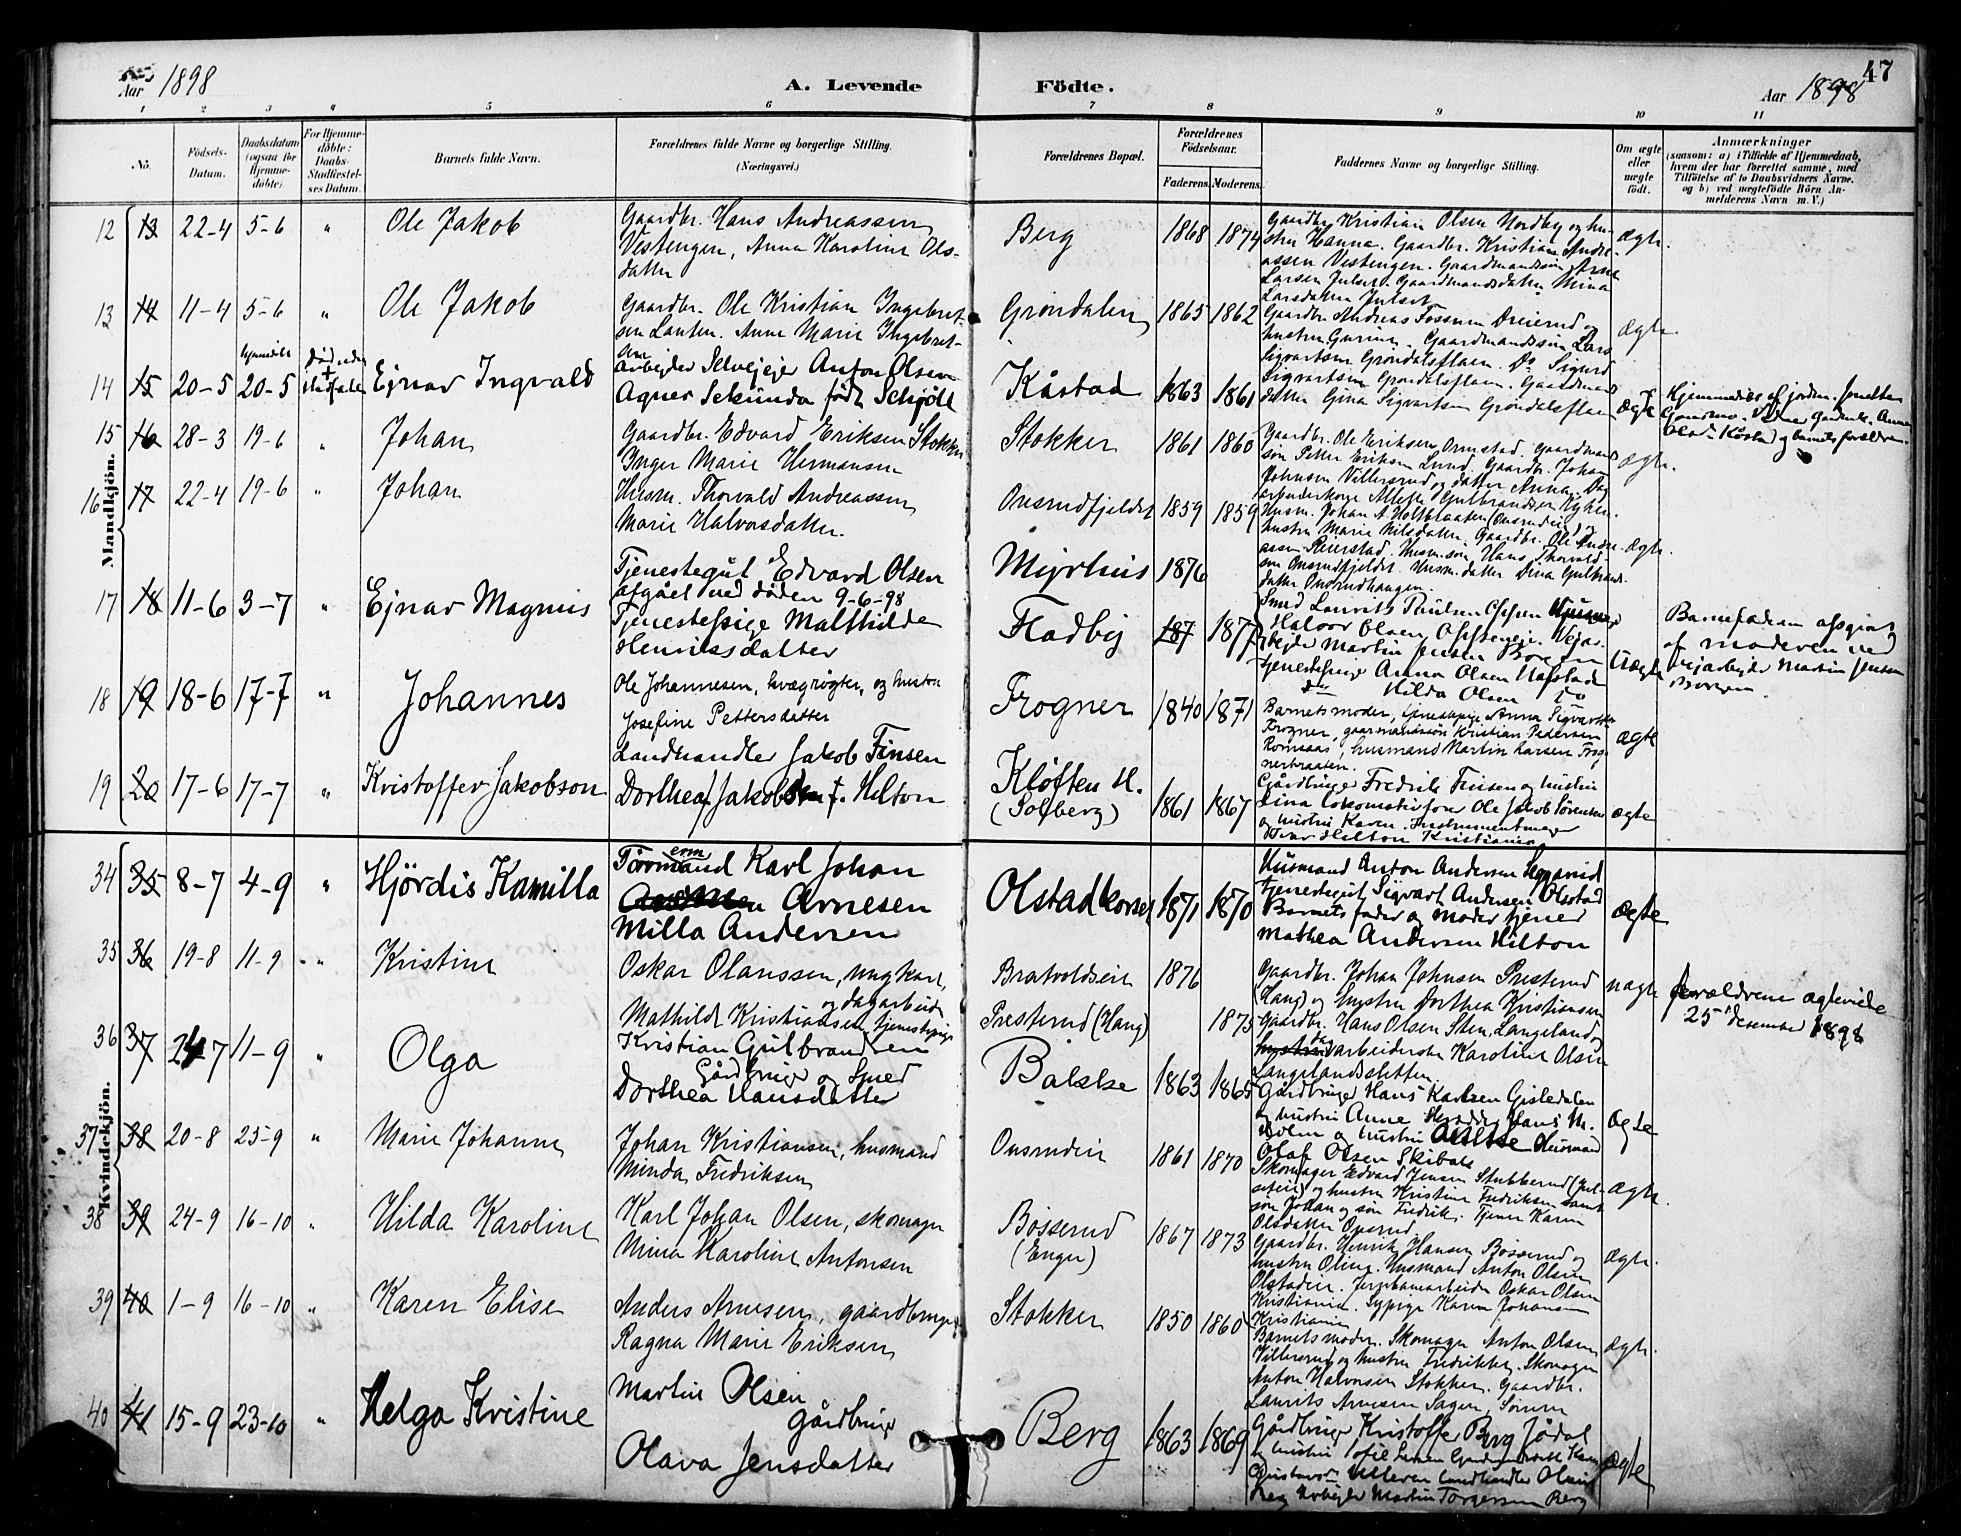 Aar 1898
A. Levende
Födte.
Aar 1898
47
1 2 3 4 5 6 7 8 9 10 11
No.
Födsels-Datum.
Daabsdatum (ogsaa for Hjemme-döbte).
For Hjemme-döbte: Daabs-Stadfæstel-ses Datum.
Barnets fulde Navn.
Forældrenes fulde Navne og borgerlige Stilling.
(Næringsvei.)
Forældrenes Bopæl.
Forældrenes Födselsaar.
Faderens. Moderens.
Faddernes Navne og borgerlige Stilling.
Om ægte eller uægte födt.
Anmærkninger
(saasom: a) i Tilfælde af Hjemmedaab,
hvem der har forrettet samme, med
Tilföielse af to Daabsvidners Navne.
og b) ved uægtefödte Börn An-
melderens Navn m. V.)
Mandkjön.
12 13 22-4 5-6 " Ole Jakob
Gaardbr. Hans Andreassen
Vestengen, Anna Karoline Ols-
datter
Berg 1868 1874
Gaardbr. Kristian Olsen Nordby og hu-
stru Hanna. Gaardbr. Kristian Andre-
assen Vestengen. Gaardmandssøn Arne
Larsen Julset. Gaardmandsdatter Mina
Larsdatter Julset
ægte.
13 14 11-4 5-6 " Ole Jakob
Gaardbr. Ole Kristian Ingebret-
sen Lauten. Anne Marie Ingebret-
sen
Grøndalen 1865 1862
Gaardbr. Andreas Fossum Dreierud og
hustru Gurine. Gaardmandssøn Lars
Sigvartsen Grøndalsflaen. Do Sigurd
Sigvartsen Grøndalsflaen. Gaardmands
datter Gina Sigvartsen Grøndalsflaen
ægte.
14 15 20-5 20-5 Ejnar Ingvald
Arbejder Selvejer Anton Olsen
Agnes Sekunda født Schjøll
Kåstad 1863 1861
ægte
Hjemmedøbt af jordm. Jonette
15 16 28-3 19-6 " Johan
Gaardbr. Edvard Eriksen Stokker
Inger Marie Hermansen
Stokker 1861 1860
Gaardbr. Ole Eriksen Ormstad. Gaardmands
søn Petter Eriksen Lund. Gaardbr. Johan
Johnsen Villersrud og datter Anna. Dag
arbeiderkone Alette Gulbrandsen
ægte.
16 17 22-4 19-6 " Johan
Husm. Thorvald Andreassen
Marie Halvorsdatter.
Onsrudfjeldet 1859 1859
Husm. Johan A. Holtblaaten (Onsrudeie) og
hustru Marie Nilsdatter. Gaardbr. Ole Andre-
assen Reierstad. Husm.søn Hans Thorvald
sen Onsrudfjeldet. Husm.datter Dina Gulbrands
datter Onsrudhaugen.
ægte.
17 18 11-6 3-7 " Ejnar Magnus
Tjenestegut Edvard Olsen
afgået ved døden 9-6-98
Tjenestepige Malthilde
Henriksdatter
Myrhus 1876
Fladby 187 1877
Smed Laurits Paulsen
Halvor Olsen Vejar-
bejder Martin Jensen Borgen
Tjenestepige Anna Olsen Hafstad
do Hilda Olsen do
Uægte
Barnefaderen opgivet
af moderen ved
vejarbejder Martin Jensen
Borgen.
18 19 18-6 17-7 " Johannes
Ole Johannesen, kvægrøgter, og hustru
Josefine Pettersdatter
Frogner 1840 1871
Barnets moder, tjenestepige Anna Sigvartsdtr
Frogner, gaardmandssøn Kristian Pedersen
Romsaas, husmand Martin Larsen Frog-
nerbraaten.
ægte
19 20 17-6 17-7 " Kristoffer Jakobson
Landhandler Jakob Finsen
Dorthea Jakobsen f. Hilton
Kløften st.
(Solberg) 1861 1867
Gårdbruger Fredrik Finsen og hustru
Lina Lokomotivfører Ole Jakob Sørensen
og hustru Karen. Instrumentmager
Hilton Kristiania
ægte
Kvindekjön.
34 35 8-7 4-9 " Hjördis Kamilla
Tørrmand Karl Johan
Arnesen
Milla Andersen
Olstadkorset 1871 1870
Husmand Anton Andersen
tjenestegut Sigvart Andersen Olstad
Barnets fader og moder tjener
Mathea Andersen Hilton
ægte
35 36 19-8 11-9 " Kristine
Oskar Olaussen, ungkarl,
og dagarbeider
Mathilde Kristiansen, tjenestepige
Bratvoldseie 1876
Presterud (Haug) 1875
Gaardbr. Johan Johnsen Presterud
(Haug) og hustru Dorthea Kristiansen
Gaardbr. Hans Olsen Sten, Langeland og
arbeiderske Karoline Olsen
Langelandsletten
uægte
forældrene ægteviede
25 desember 1898
36 37 24-7 11-9 " Olga
Kristian Gulbrandsen
Gårdbruger og Smed
Dorthea Hansdatter
Balske 1863 1865
Gårdbruger Hans Karlsen Gisledalen
og hustru Anne Hans M.
Holm og hustru Husmand
Olaf Olsen Skibak
Ægte
37 38 20-8 25-9 " Marie Johanne
Johan Kristiansen, husmand
Minda Fredriksen
Onsrudeie 1861 1870
Skomager Edvard Jensen Stubberud (Jul-
seteie) og hustru Kristine Fredriksen samt
søn Johan og søn Fredrik. Tjener Karen
Olsdatter Onsrud.
ægte.
38 39 24-9 16-10 " Hilda Karoline
Karl Johan Olsen, skomager
Mina Karoline Antonsen
Bøsserud
(Enger) 1867 1873
Gaardbr. Henrik Hansen Bøsserud og
hustru Oline. Husmand Anton Olsen
Olstadeie. Jernbanearbeider Oskar Olsen
Kristiania. Sypige Karen Johansen
Kristiania
ægte.
39 40 1-9 16-10 " Karen Elise
Anders Arnesen, gaardbruger,
Ragna Marie Eriksen
Stokker 1850 1860
Barnets moder. Skomager Anton Olsen
Villersrud og hustru Fredrikke. Skomager
Anton Halvorsen Stokker. Gaardbr.
Laurits Arnesen Sagen, Sørum
ægte.
40 41 15-9 23-10 " Helga Kristine
Martin Olsen
Gårdbruger
Olava Jensdatter
Berg 1863 1869
Gårdbruger Kristoffer Berg Jødal
og hustru
Gustavsen Ulleren Landhandler
Berg Arbejder Martin Torgersen Berg
ægte